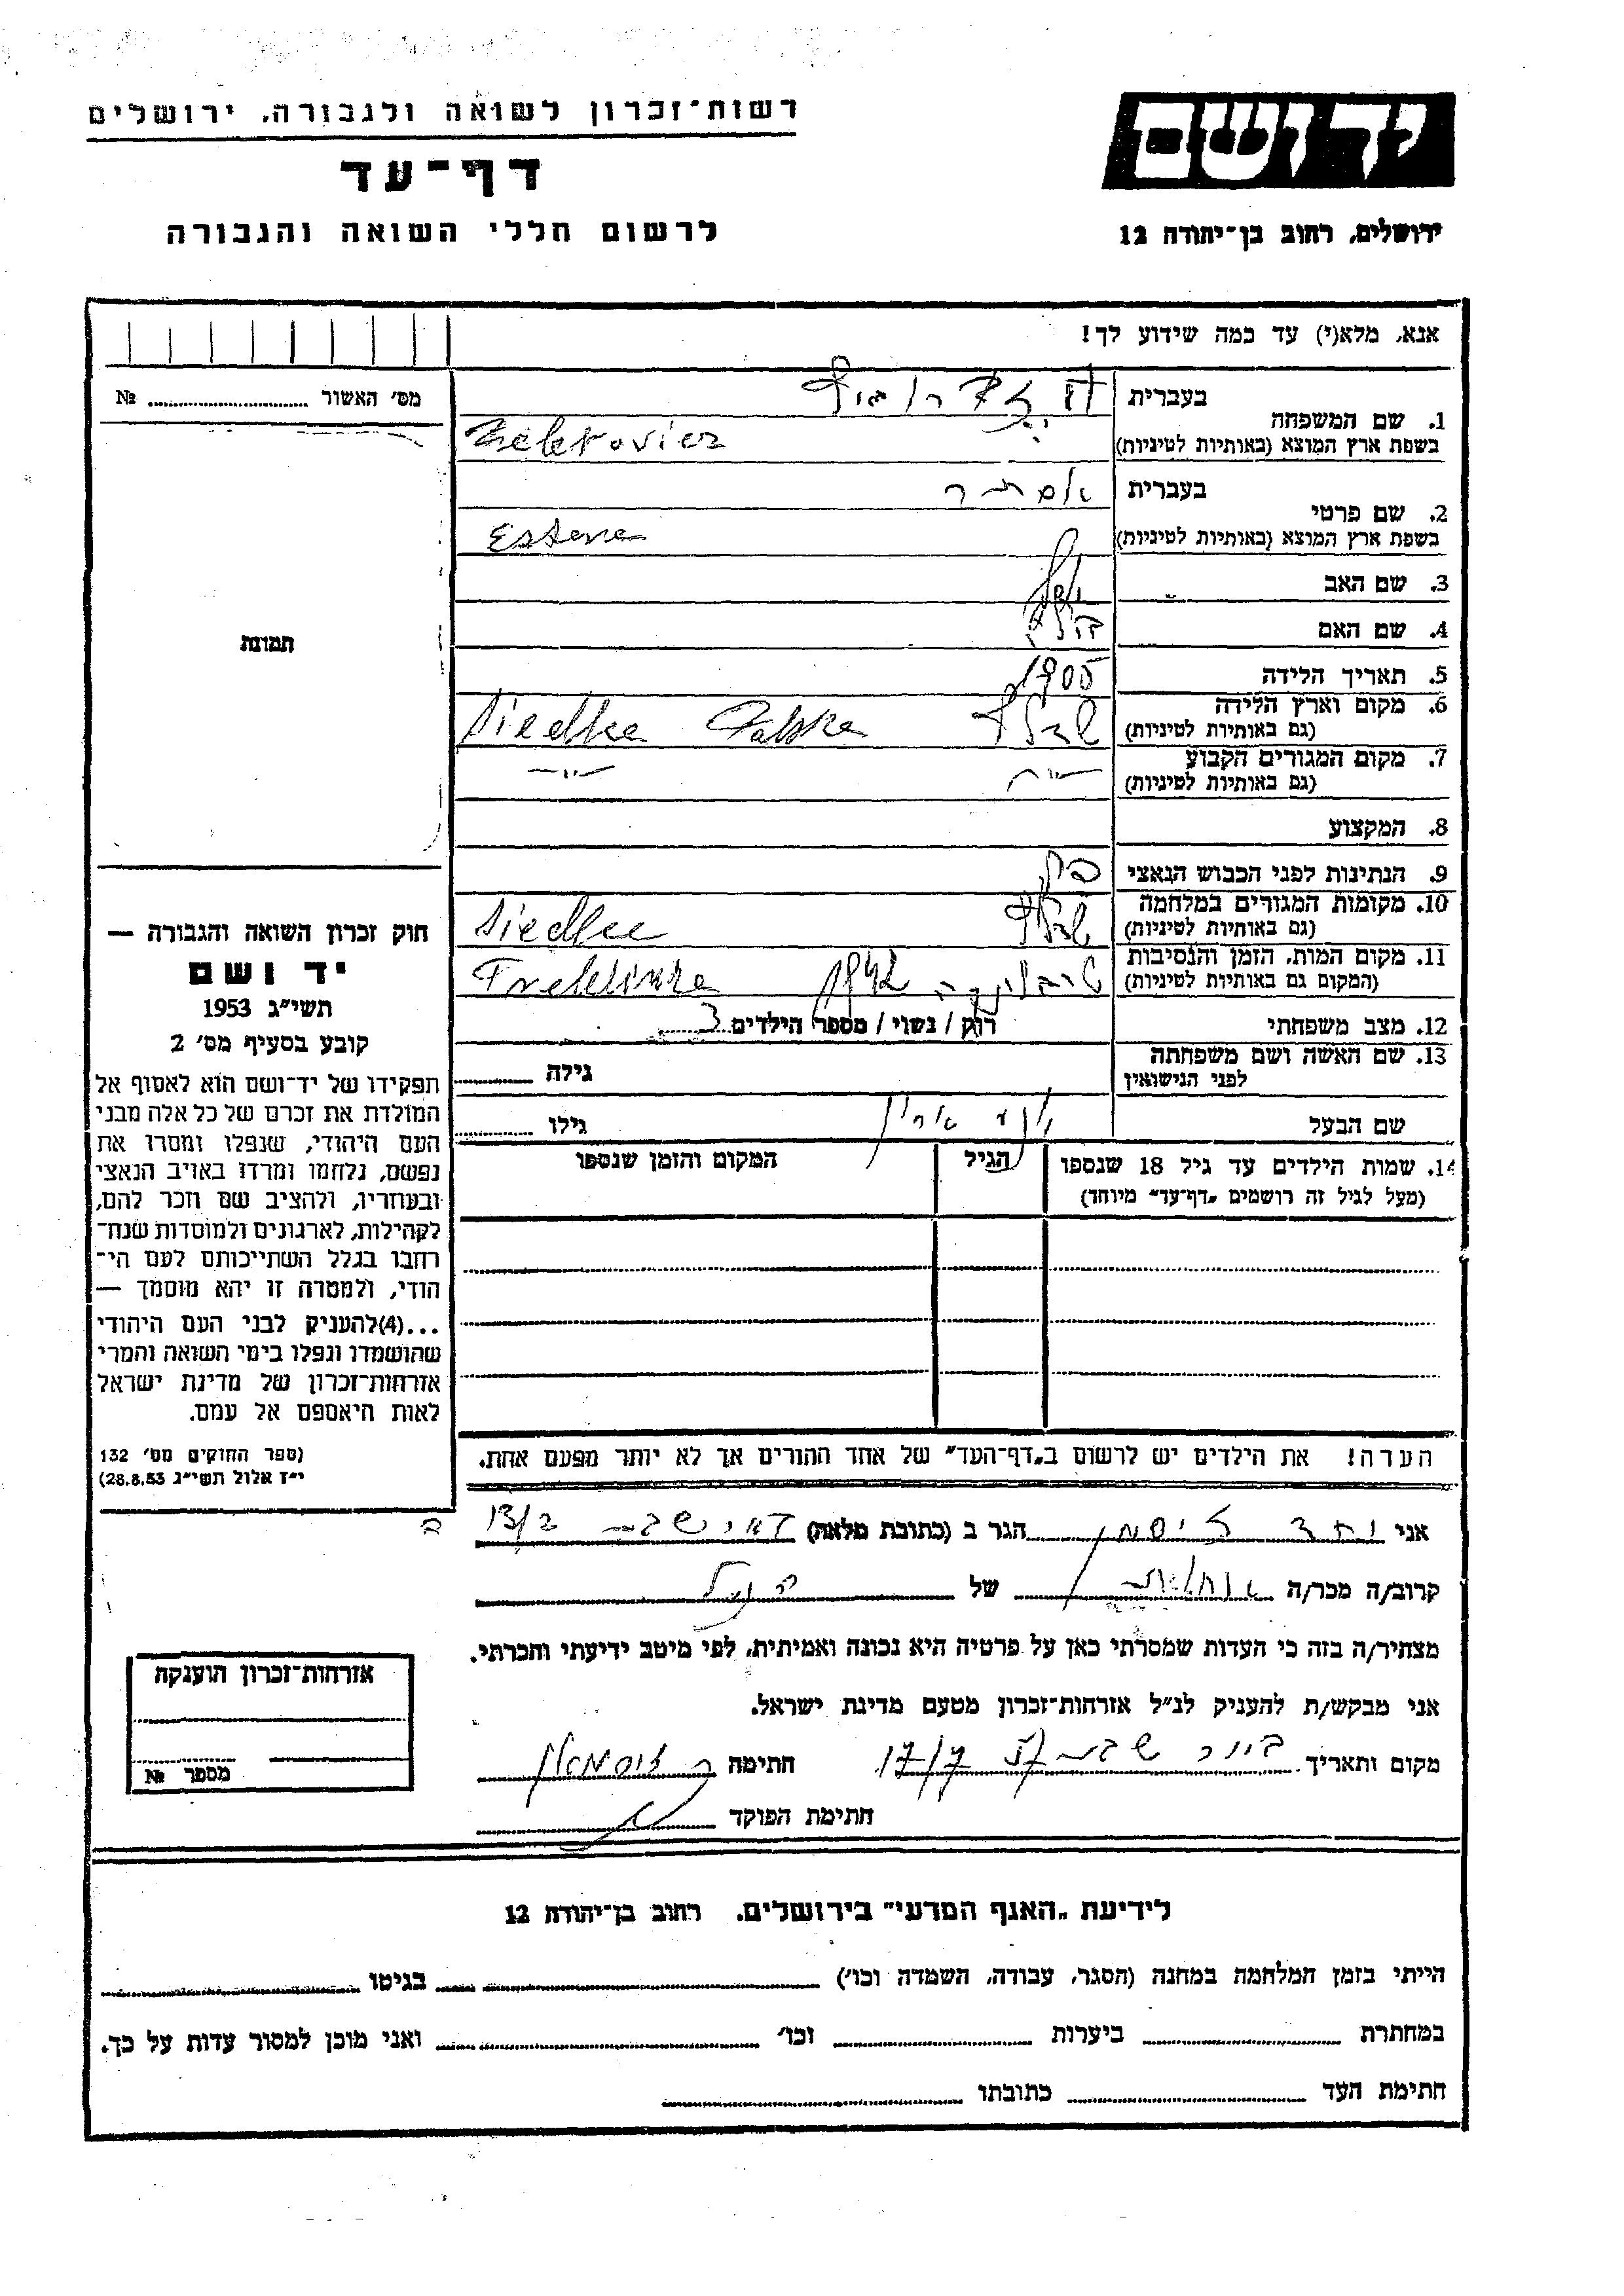 רשות־זכרון לשואה ולגבורה, ירושלים
דף־עד
לרשום חללי השואה והגבורה
יד ושם
ירושלים, רחוב בן־יהודה 12
אנא, מלא(י) עד כמה שידוע לך!
מס׳ האשור № 
1. שם המשפחה
בעברית
בשפת ארץ המוצא (באותיות לטיניות)
2. שם פרטי
בעברית אסתר
בשפת ארץ המוצא (באותיות לטיניות) Estera
3. שם האב
4. שם האם
5. תאריך הלידה 1905
6. מקום וארץ הלידה
(גם באותיות לטיניות) שדלץ Polska Siedlce
7. מקום המגורים הקבוע
(גם באותיות לטיניות) —"— —"—
8. המקצוע
9. הנתינות לפני הכבוש הנאצי
10. מקומות המגורים במלחמה
(גם באותיות לטיניות) שדלץ Siedlce
11. מקום המות, הזמן והנסיבות
(המקום גם באותיות לטיניות) טרבלינקה 1942 Treblinka
12. מצב משפחתי רוק / נשוי / מספר הילדים 3
13. שם האשה ושם משפחתה
לפני הנישואין גילה
שם הבעל גילו
14. שמות הילדים עד גיל 18 שנספו
(מעל לגיל זה רושמים „דף־עד״ מיוחד)
הגיל
המקום והזמן שנספו
תמונה
חוק זכרון השואה והגבורה —
יד ושם
תשי״ג 1953
קובע בסעיף מס׳ 2
תפקידו של יד־ושם הוא לאסוף אל
המולדת את זכרם של כל אלה מבני
העם היהודי, שנפלו ומסרו את
נפשם, נלחמו ומרדו באויב הנאצי
ובעוזריו, ולהציב שם וזכר להם,
לקהילות, לארגונים ולמוסדות שנח־
רחבו בגלל השתייכותם לעם הי־
הודי, ולמטרה זו יהא מוסמך —
...(4) להעניק לבני העם היהודי
שהושמדו ונפלו בימי השואה והמרי
אזרחות־זכרון של מדינת ישראל
לאות היאספם אל עמם.
(ספר החוקים מס׳ 132
י״ז אלול תשי״ג 28.8.53)
הערה! את הילדים יש לרשום ב„דף־העד״ של אחד ההורים אך לא יותר מפעם אחת.
אני זיסמן הגר ב (כתובת מלאה)
קרוב/ה מכר/ה של
מצהיר/ה בזה כי העדות שמסרתי כאן על פרטיה היא נכונה ואמיתית, לפי מיטב ידיעתי והכרתי.
אני מבקש/ת להעניק לנ״ל אזרחות־זכרון מטעם מדינת ישראל.
מקום ותאריך באר שבע 17/7 57 חתימה
חתימת הפוקד
אזרחות־זכרון הוענקה
מספר №
לידיעת „האגף המדעי״ בירושלים, רחוב בן־יהודה 12
הייתי בזמן המלחמה במחנה (הסגר, עבודה, השמדה וכו׳) בגיטו
במחתרת ביערות וכו׳ ואני מוכן למסור עדות על כך.
חתימת העד כתובתו